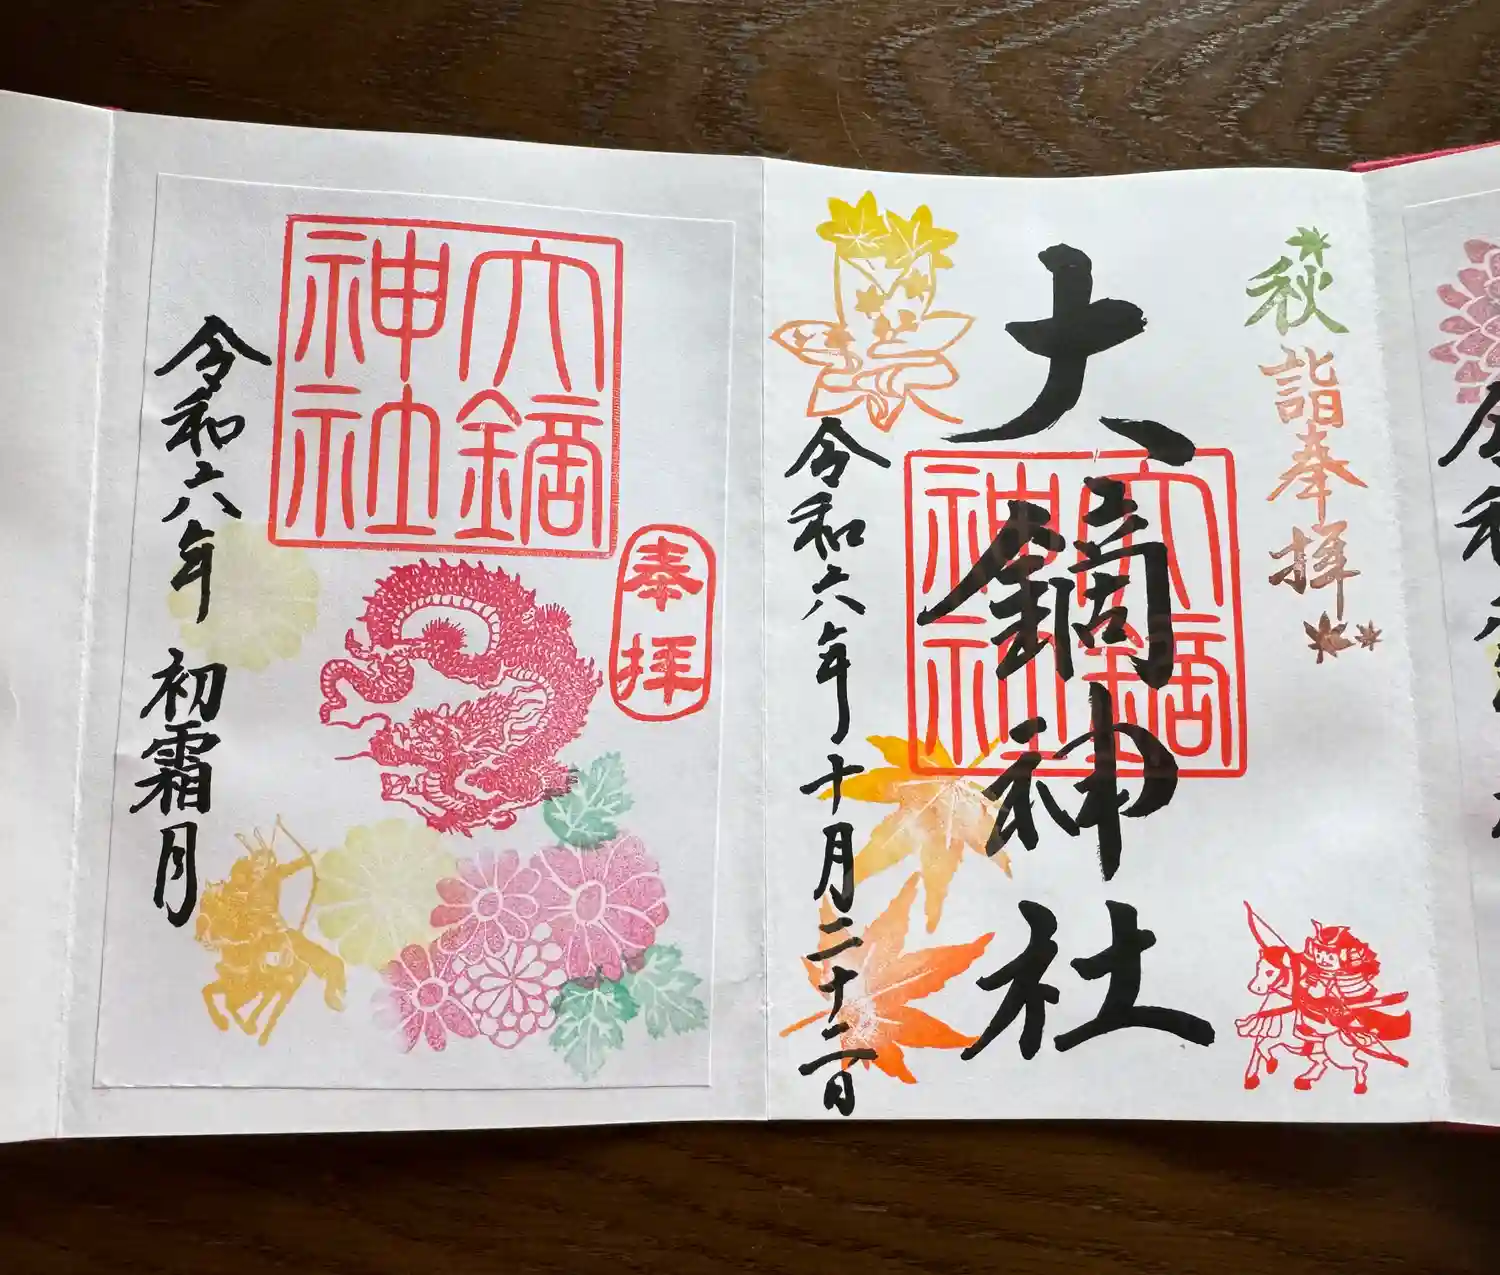 秋詣奉拝
大鏑神社
大鏑
神社
令和六年十月二十二日
奉拝
大鏑
神社
令和六年 初霜月